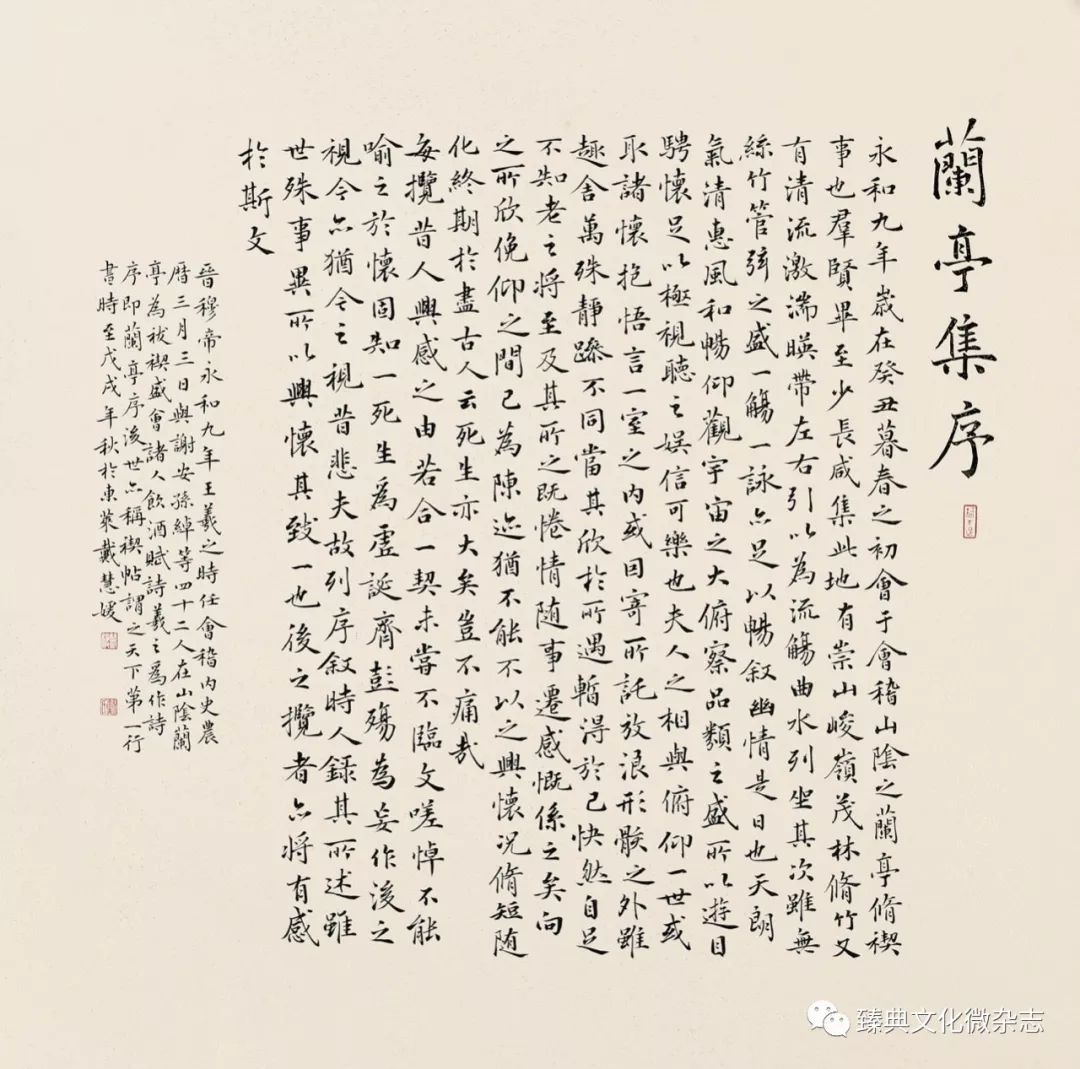 蘭亭集序
永和九年歲在癸丑暮春之初會于會稽山陰之蘭亭脩禊
事也羣賢畢至少長咸集此地有崇山峻嶺茂林脩竹又
有清流激湍暎帶左右引以為流觴曲水列坐其次雖無
絲竹管弦之盛一觴一詠亦足以暢叙幽情是日也天朗
氣清惠風和暢仰觀宇宙之大俯察品類之盛所以遊目
騁懷足以極視聽之娛信可樂也夫人之相與俯仰一世或
取諸懷抱悟言一室之內或因寄所託放浪形骸之外雖
趣舍萬殊靜躁不同當其欣於所遇暫得於己快然自足
不知老之將至及其所之既惓情随事遷感慨係之矣向
之所欣俛仰之間已為陳迹猶不能不以之興懷況脩短随
化終期於盡古人云死生亦大矣豈不痛哉
每攬昔人興感之由若合一契未嘗不臨文嗟悼不能
喻之於懷固知一死生為虛誕齊彭殤為妄作後之
視今亦猶今之視昔悲夫故列序叙時人錄其所述雖
世殊事異所以興懷其致一也後之攬者亦將有感
於斯文
晉穆帝永和九年王羲之時任會稽內史農
曆三月三日與謝安孫綽等四十二人在山陰蘭
亭為祓禊盛會諸人飲酒賦詩羲之為作詩
序即蘭亭序後世亦稱禊帖謂之天下第一行
書時至戊戌年秋於東萊戴慧媛
臻典文化微杂志